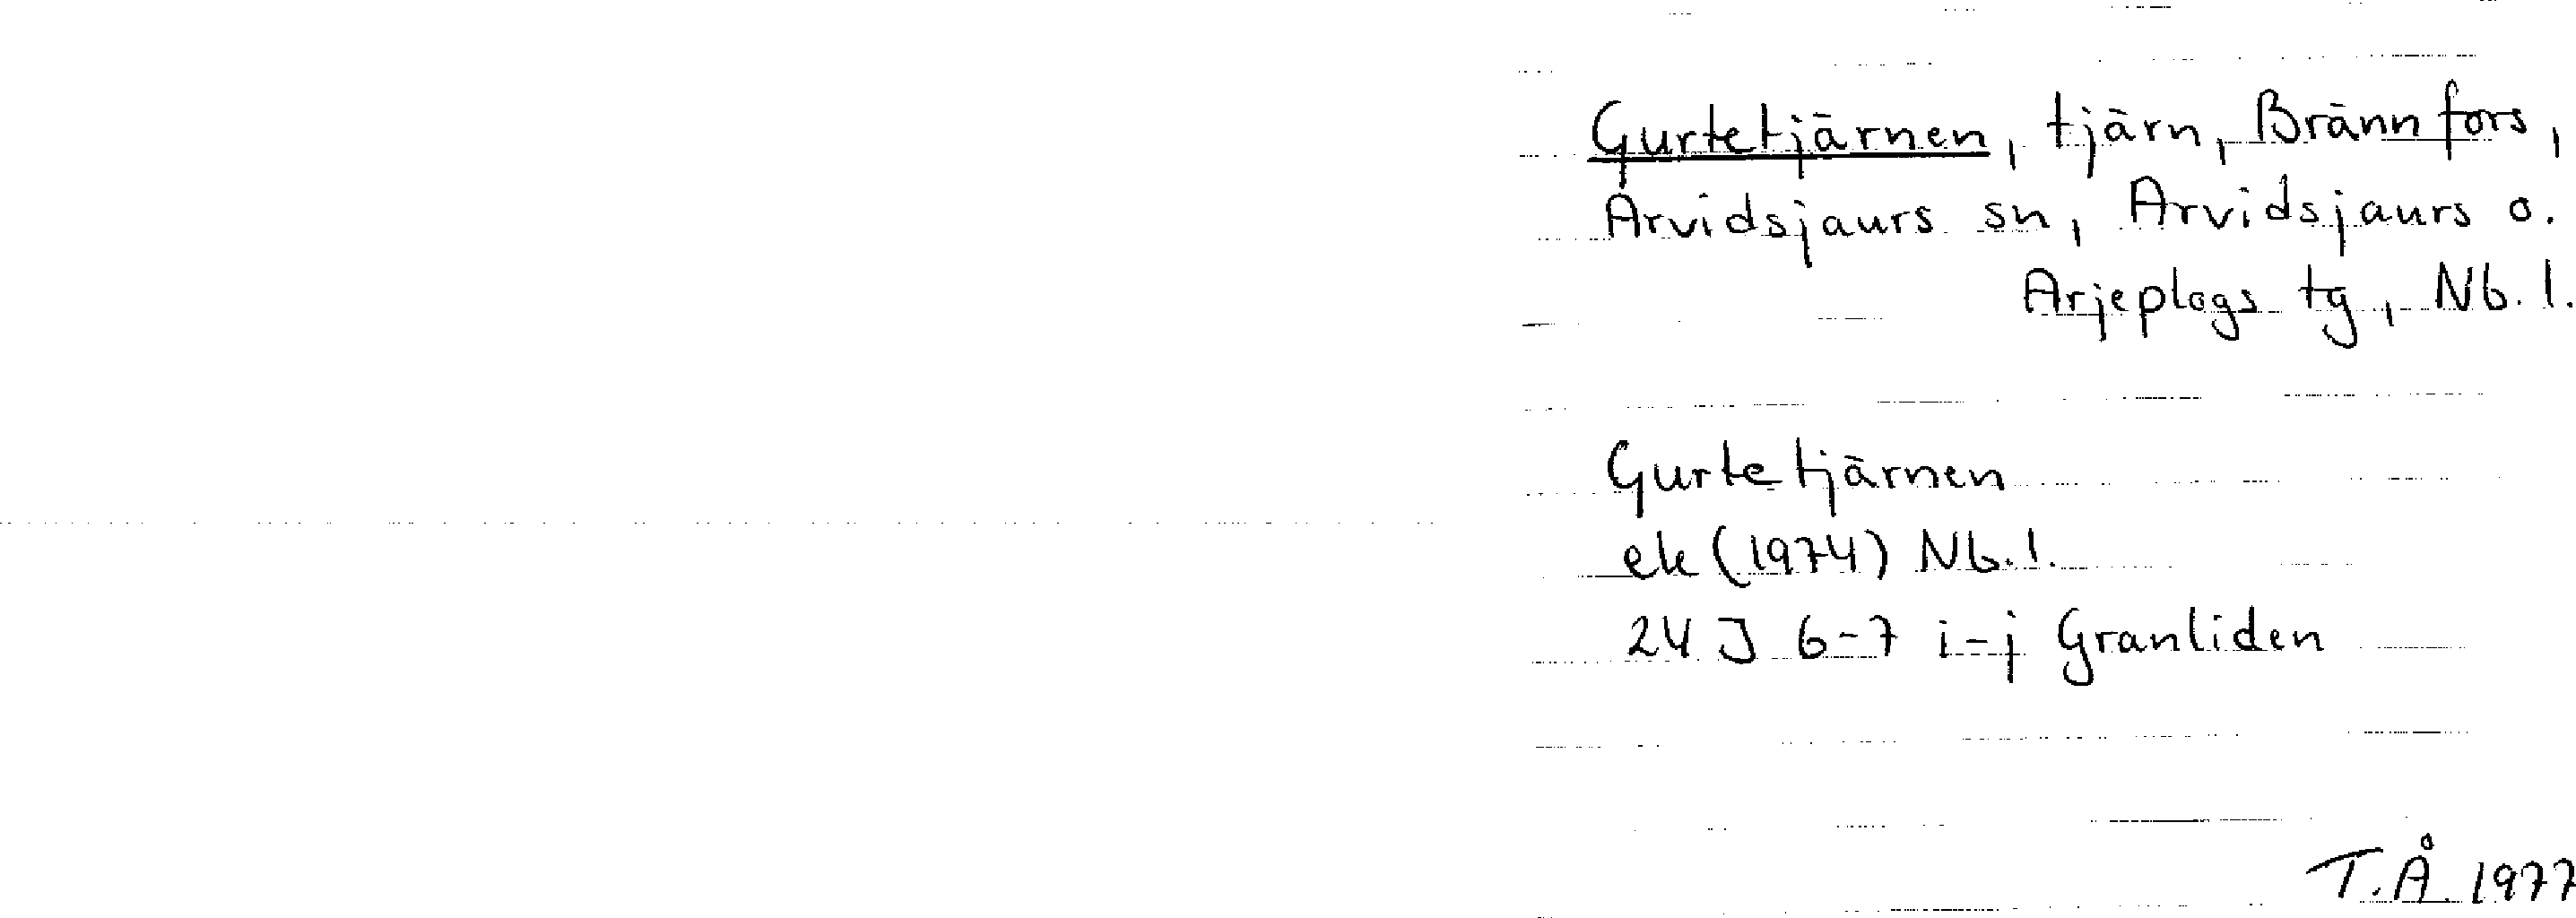 Gurtetjärnen, tjärn, Brännfors,
Arvidsjaurs sn, Arvidsjaurs o.
Arjeplogs tg, Nb. l.
Gurtetjärnen
ek (1974) Nb. l.
24 J 6-7 i-j Granliden
T.Å. 1977